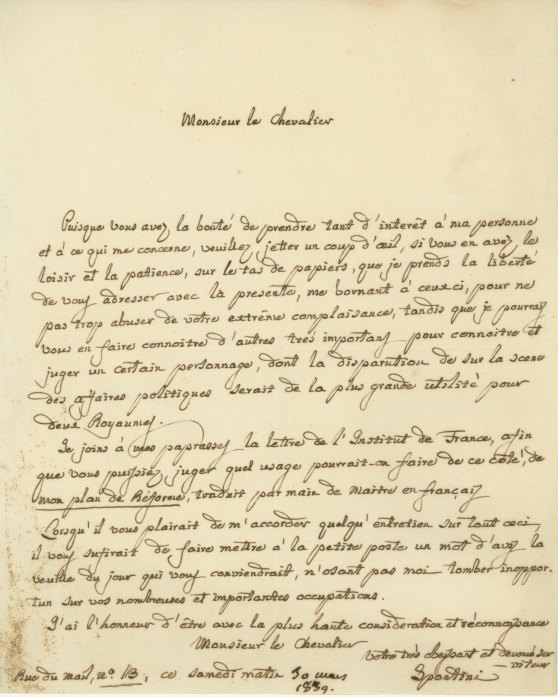 Monsieur le Chevalier
Puisque vous avez la bonté de prendre tant d'interêt à ma personne
et à ce qui me concerne, veuillez jetter un coup d'œil, si vous en avez le
loisir et la patience, sur le tas de papiers, que je prends la liberté
de vous adresser avec la presente, me bornant à ceux-ci, pour ne
pas trop abuser de votre extrême complaisance, tandis que je pourrais
vous en faire connoitre d'autres très importans pour connoitre et
juger un certain personnage, dont la disparution de sur la scene
des affaires politiques serait de la plus grande utilité pour
deux Royaumes.
Je joins à mes paprasses la lettre de l'Institut de France, afin
que vous puissiez juger quel usage pourrait-on faire de ce côté, de
mon plan de Réforme, traduit par main de Maitre en français
Lorsqu'il vous plairait de m'accorder quelqu'entretien sur tout ceci,
il vous sufirait de faire mettre à la petite poste un mot d'avis la
veuille du jour qui vous conviendrait, n'osant pas moi tomber inoppor-
tun sur vos nombreuses et importantes occupations.
J'ai l'honneur d'être avec la plus haute consideration et réconnoissance
Monsieur le Chevalier
votre très obeissant et devoué ser-
viteur
Rue du mail, n° 13, ce samedi matin 30 mars
1839.
Spontini